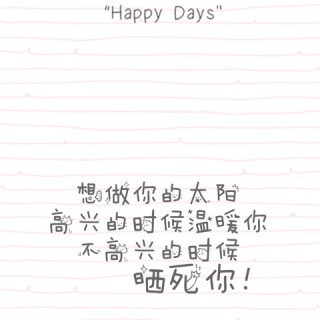 “Happy Days"
想做你的太阳
高兴的时候温暖你
不高兴的时候
晒死你!